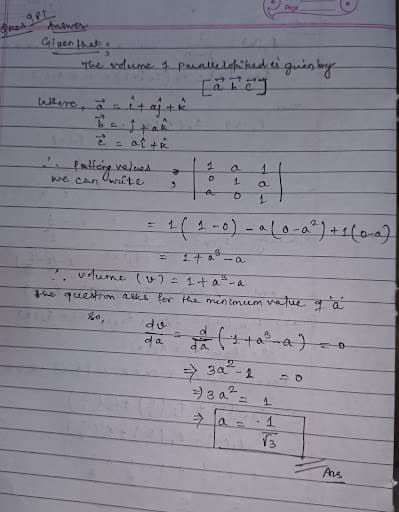 Page
Ques 9 pt Answer
Given that,
The volume of Parallelopiped is given by
[a⃗ b⃗ c⃗]
where, a⃗ = î + aĵ + k̂
b⃗ = ĵ + ak̂
c⃗ = aî + k̂
∴ Putting values
we can write,
| 1 a 1 |
| 0 1 a |
| a 0 1 |
= 1(1-0) - a(0-a²) + 1(0-a)
= 1 + a³ - a
∴ volume (v) = 1 + a³ - a
the question asks for the minimum value of 'a'
so,
dv/da = d/da (1 + a³ - a) = 0
⇒ 3a² - 1 = 0
⇒ 3a² = 1
⇒ a = 1/√3
Ans